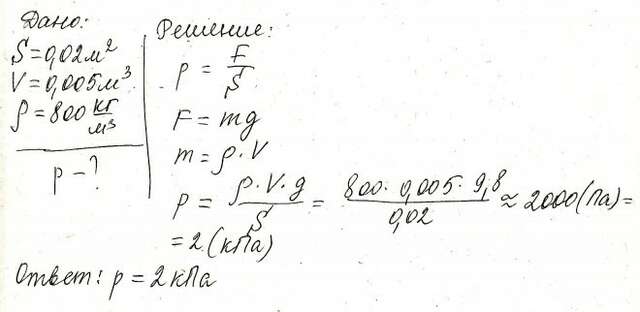 Дано:
S = 0,02 м²
V = 0,005 м³
ρ = 800 кг/м³
p – ?
Решение:
p = F/S
F = mg
m = ρ · V
p = ρ · V · g / S = 800 · 0,005 · 9,8 / 0,02 ≈ 2000 (Па) =
= 2 (кПа)
Ответ: p = 2 кПа